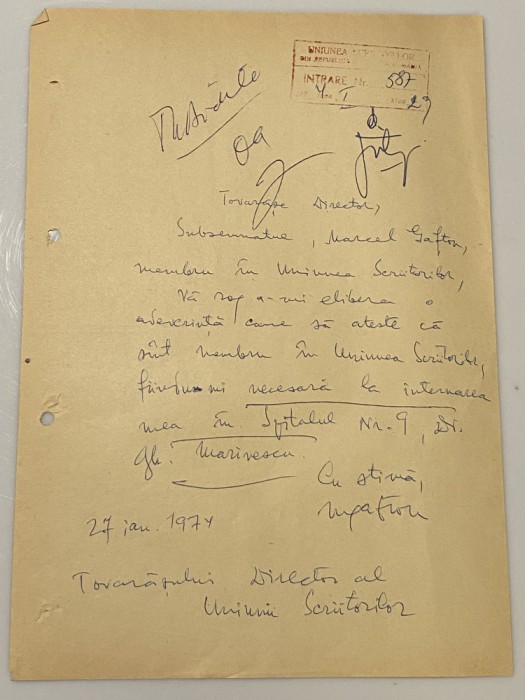 UNIUNEA SCRIITORILOR
DIN REPUBLICA
INTRARE Nr. 587
Da
Tovarășe Director,
Subsemnatul, Marcel Gafton,
membru în Uniunea Scriitorilor,
Vă rog a-mi elibera o
adeverință care să ateste că
sînt membru în Uniunea Scriitorilor,
fiindu-mi necesară la internarea
mea în Spitalul Nr. 9, Dr.
Gh. Marinescu.
Cu stimă,
MGafton
27 ian. 1974
Tovarășului Director al
Uniunii Scriitorilor